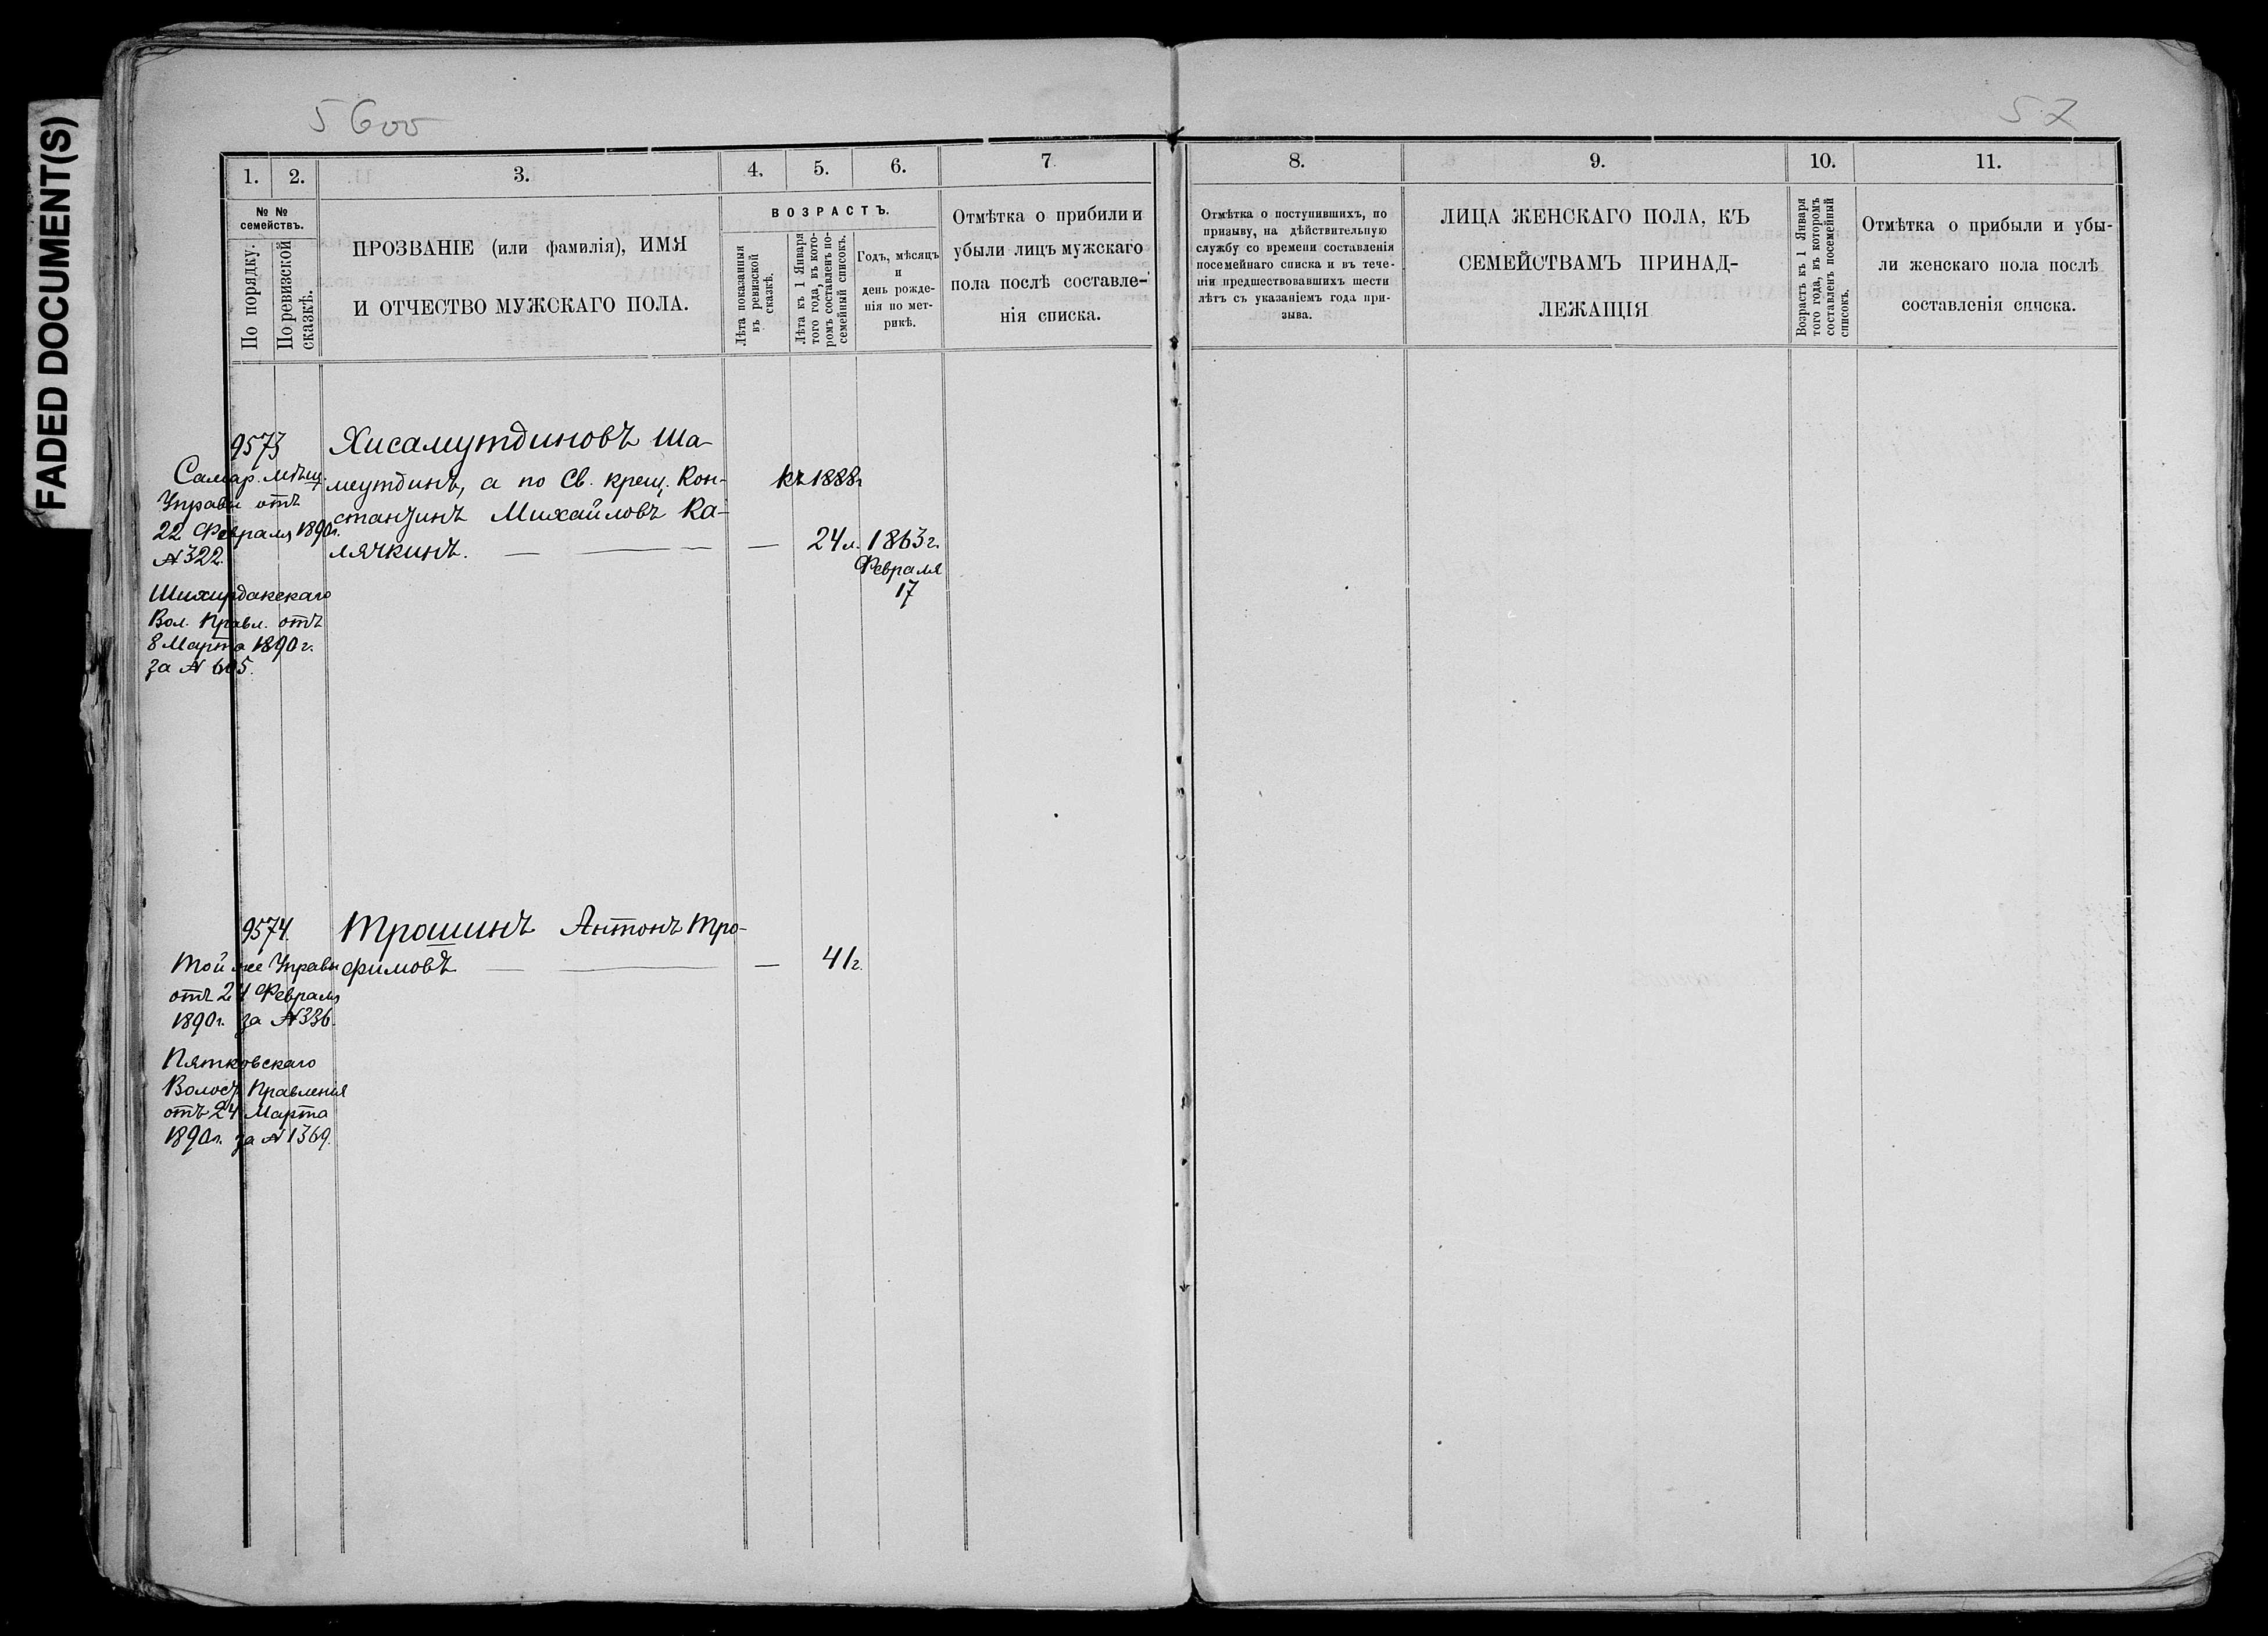 FADED DOCUMENT(S)
5600
57
1. 2. 3. 4. 5. 6. 7
№ № семействъ.
По порядку.
По ревизской сказкѣ.
ПРОЗВАНІЕ (или фамилія), ИМЯ
И ОТЧЕСТВО МУЖСКАГО ПОЛА.
ВОЗРАСТЪ.
Лѣта показанныя
въ ревизской
сказкѣ.
Лѣта къ 1 Января
того года, въ кото-
ромъ составленъ по-
семейный списокъ.
Годъ, мѣсяцъ
и
день рожде-
нія по мет-
рикѣ.
Отмѣтка о прибили и
убыли лицъ мужскаго
пола послѣ составле-
нія списка.
8. 9. 10. 11.
Отмѣтка о поступившихъ, по
призыву, на дѣйствительную
службу со времени составленія
посемейнаго списка и въ тече-
ніи предшествовавшихъ шести
лѣтъ съ указаніемъ года при-
зыва.
ЛИЦА ЖЕНСКАГО ПОЛА, КЪ
СЕМЕЙСТВАМЪ ПРИНАД-
ЛЕЖАЩІЯ
Возрастъ къ 1 Января
того года, въ которомъ
составленъ посемейный
списокъ.
Отмѣтка о прибыли и убы-
ли женскаго пола послѣ
составленія списка.
9573
Самар. Мѣщ.
Управы отъ
22 Февраля 1890г.
№ 322.
Шихирданскаго
Вол. Правл. отъ
8 Марта 1890 г.
за № 605.
Хисамутдиновъ Ша-
мсутдинъ, а по Св. крещ. Кон-
стантинъ Михайловъ Ка-
лячкинъ. — — — —
къ 1888г
24 л. 1863 г.
Февраля
17
9574.
Той же Управы
отъ 24 Февраля
1890г. за № 336.
Пятковскаго
Волост. Правленія
отъ 24 Марта
1890г. за № 1369.
Трошинъ Антонъ Тро-
фимовъ — — — 41г.